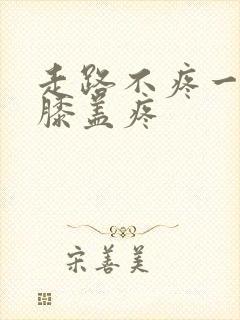 走路不疼一
膝盖疼
宋善美